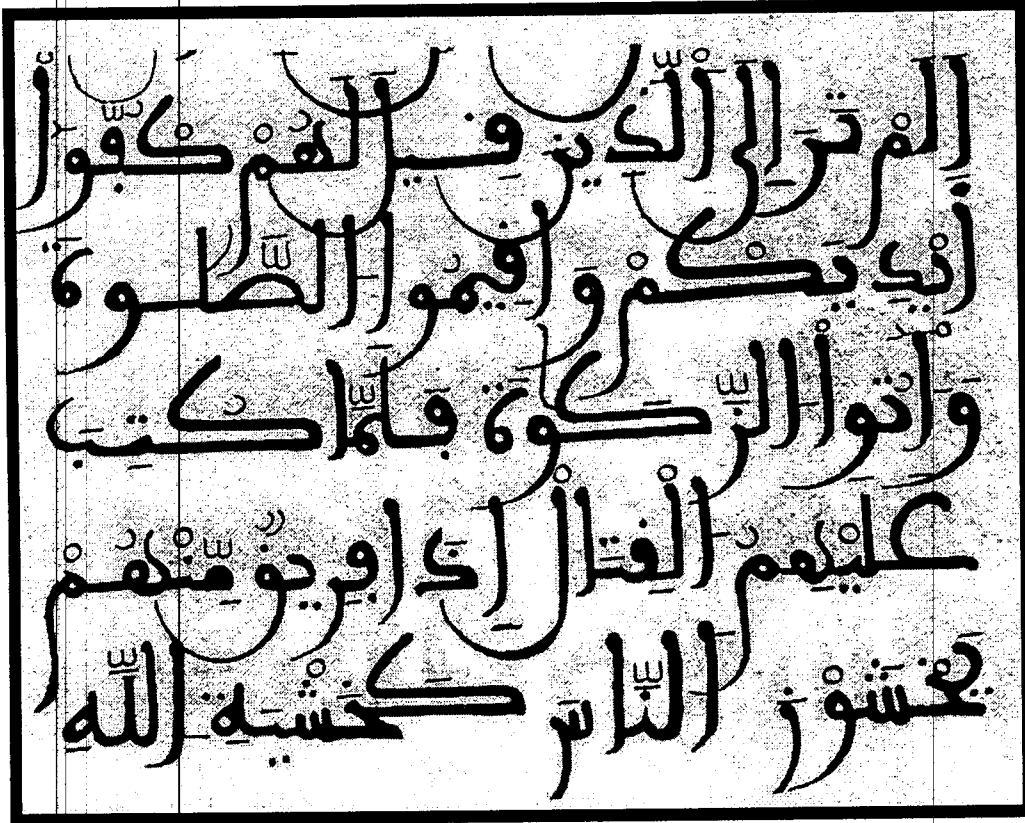 اَلَمْ تَرَ إِلَى اَلَّذِينَ قِيلَ لَهُمْ كُفُّوٓاْ
أَيْدِيَكُمْ وَأَقِيمُواْ اَلصَّلَوٰةَ
وَءَاتُواْ اَلزَّكَوٰةَ فَلَمَّا كُتِبَ
عَلَيْهِمُ اَلْقِتَالُ إِذَا فَرِيقٌ مِّنْهُمْ
يَخْشَوْنَ اَلنَّاسَ كَخَشْيَةِ اِللَّهِ